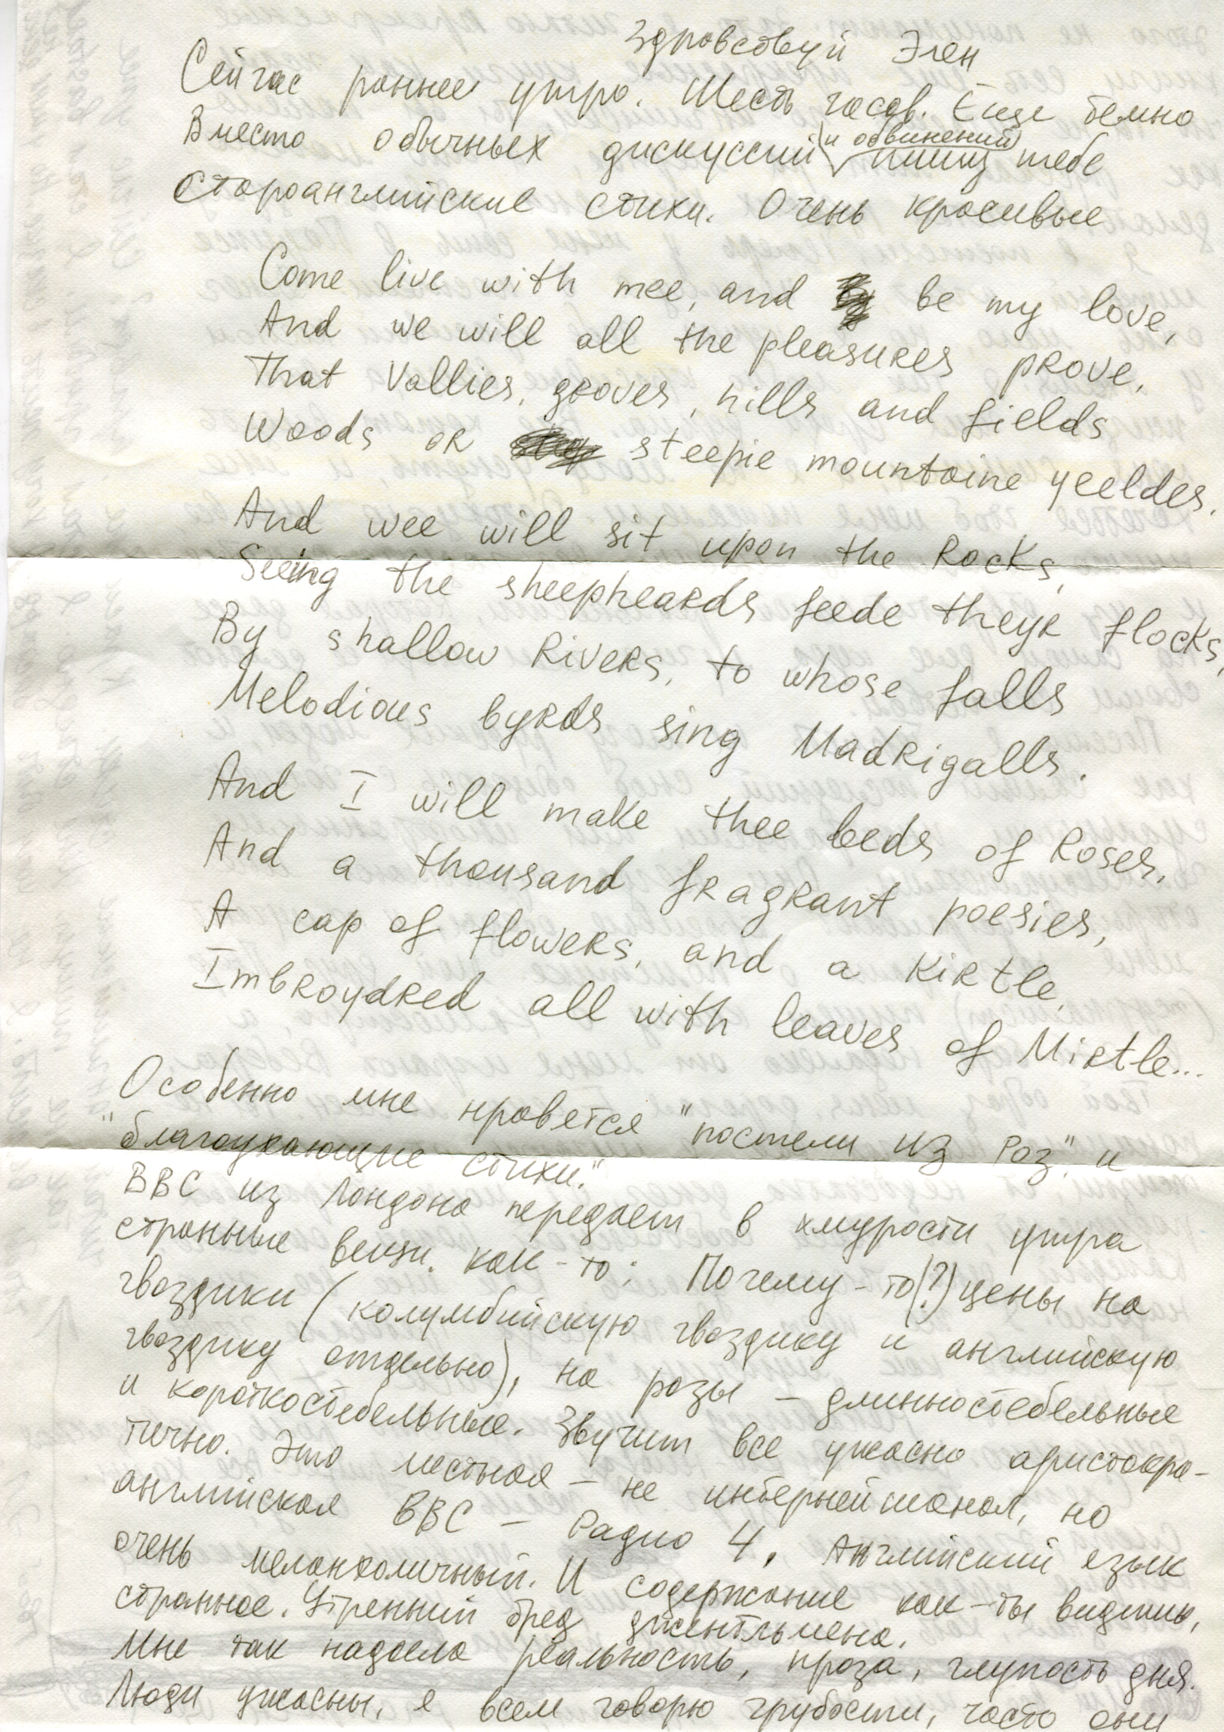 Здравствуй Эген
Сейчас раннее утро. Шесть часов. Еще темно
Вместо обычных дискуссий (и обвинений) пишу тебе
староанглийские стихи. Очень красивые
Come live with mee, and be my love,
And we will all the pleasures prove,
That Vallies, groves, hills and fields
Woods or steepie mountaine yeeldes.
And wee will sit upon the Rocks,
Seeing the sheepheards feede theyr flocks,
By shallow Rivers, to whose falls
Melodious byrds sing Madrigalls.
And I will make thee beds of Roses,
And a thousand fragrant poesies,
A cap of flowers, and a kirtle,
Imbroydred all with leaves of Mirtle...
Особенно мне нравятся "постели из роз" и
"благоухающие стихи."
BBC из Лондона передает в хмурости утра
странные вещи. как-то: Почему-то(?) цены на
гвоздики (колумбийскую гвоздику и английскую
гвоздику отдельно), на розы – длинностебельные
и короткостебельные. Звучит все ужасно аристокра-
тично. Это местная – не интернейшанал, но
английская BBC – Радио 4. Английский язык
очень меланхоличный. И содержание как-ты видишь,
странное. Утренний бред джентльмена.
Мне так надоела реальность, проза, глупость дня.
Люди ужасны, я всем говорю грубости, часто они